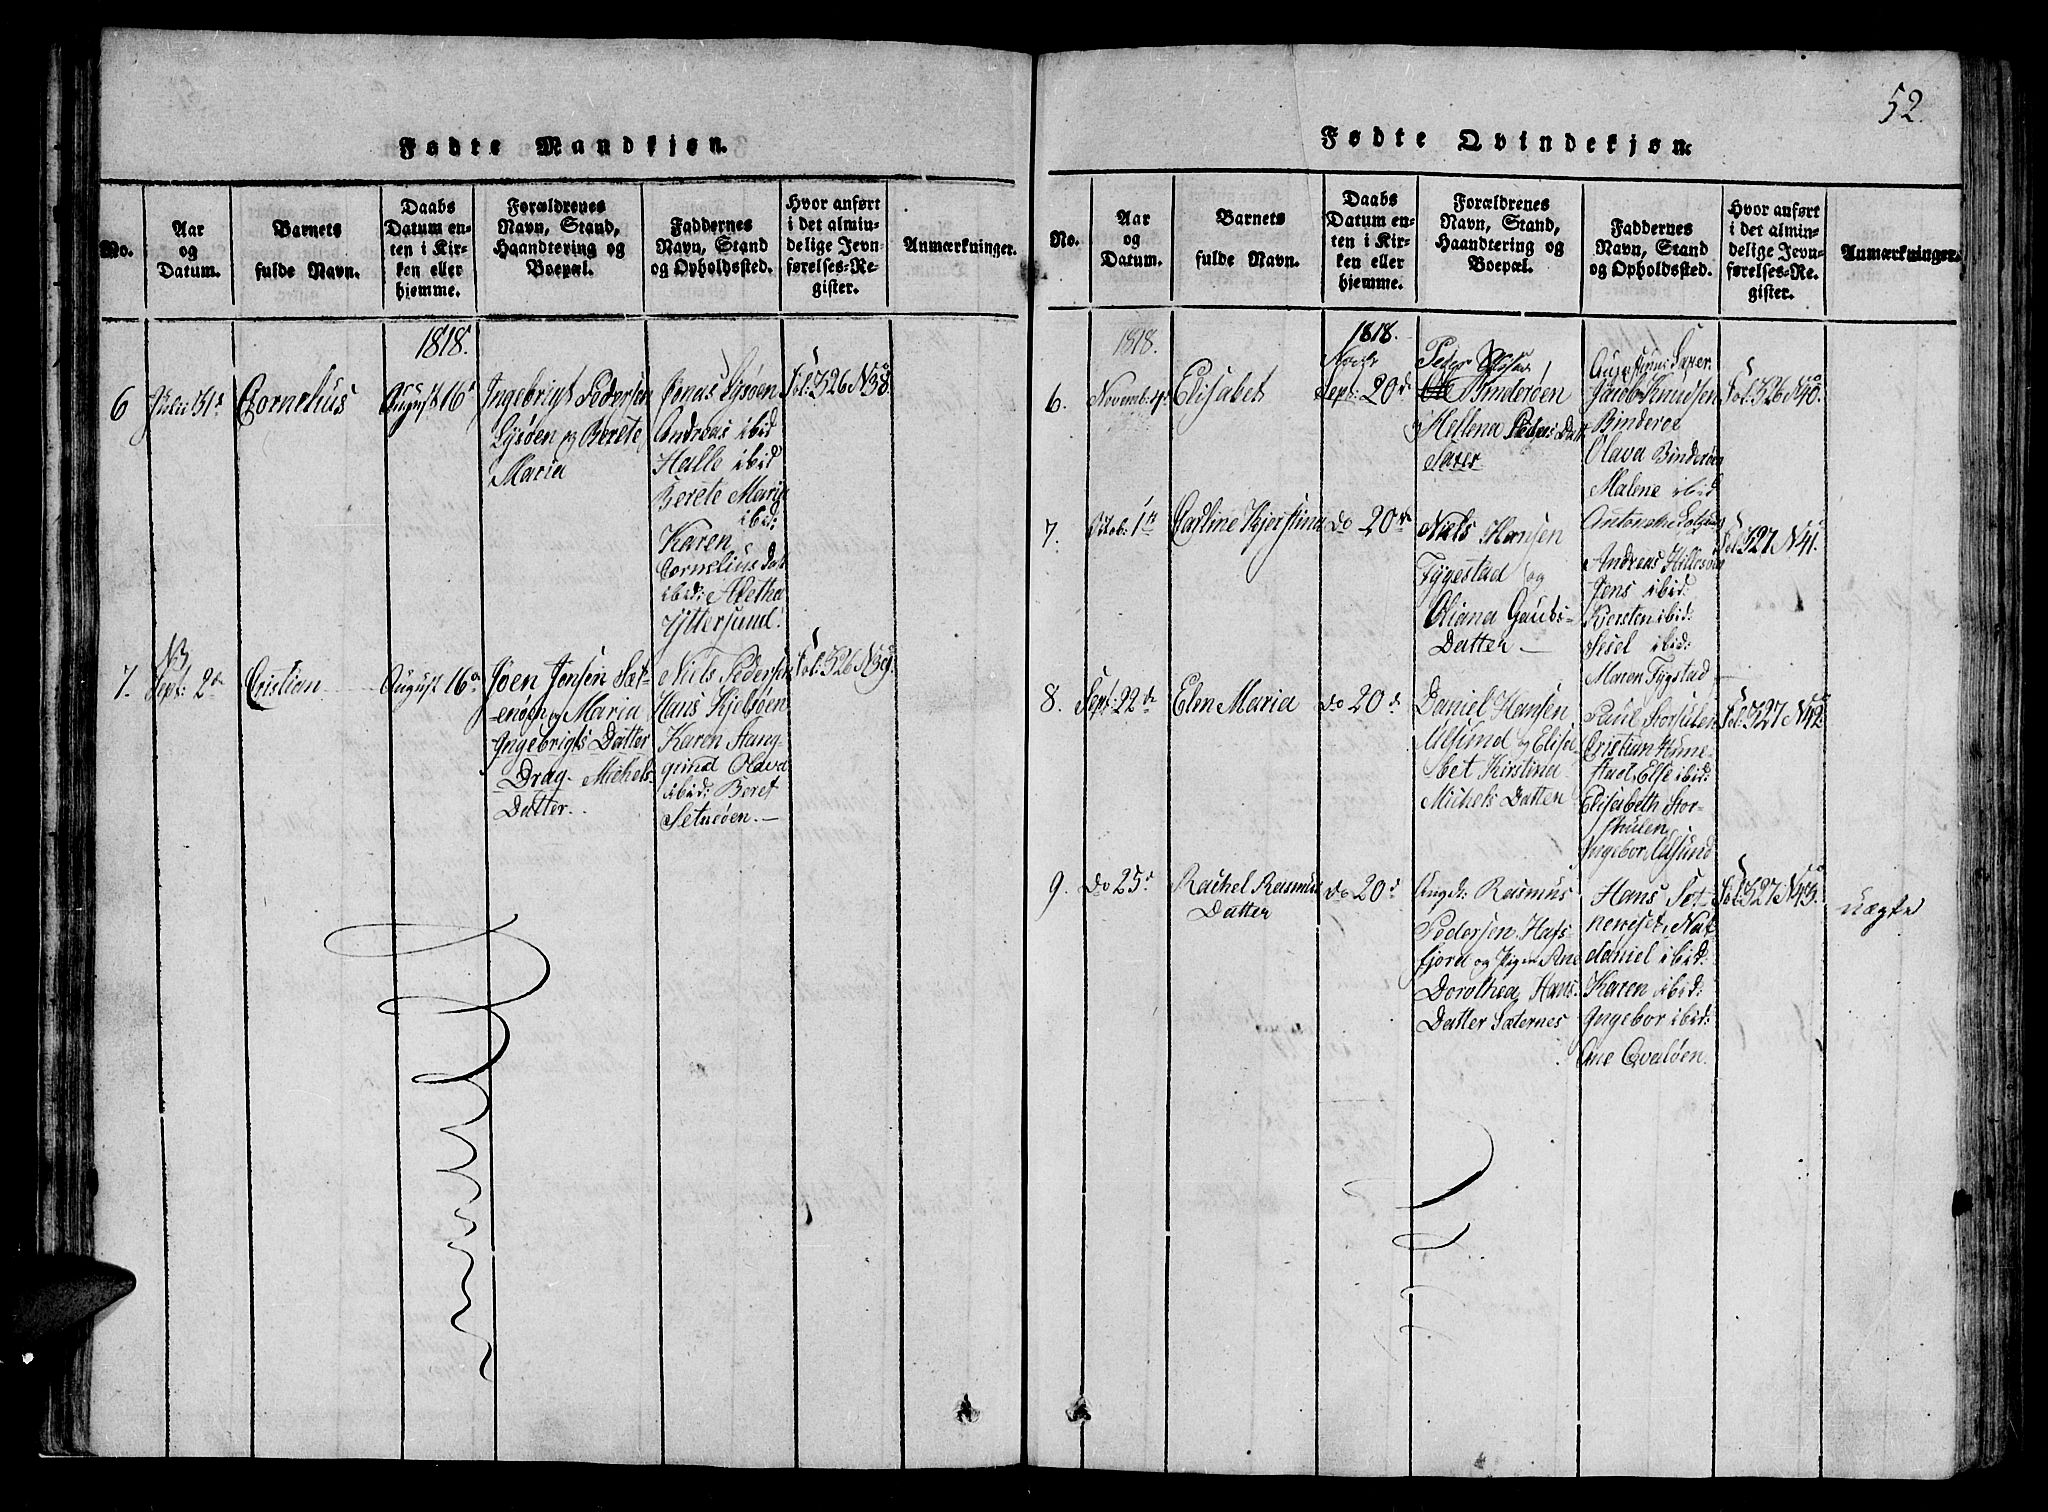 52.
Fødte Mandkjøn.
No.
Aar
og
Datum.
Barnets
fulde Navn.
Daabs
Datum en-
ten i Kir-
ken eller
hjemme.
Forældrenes
Navn, Stand,
Haandtering og
Boepæl.
Faddernes
Navn, Stand
og Opholdssted.
Hvor anført
i det almin-
delige Jevn-
førelses-Re-
gister.
Anmærkninger.
1818.
6
Julii 31
Cornelius
August 16
Ingebrigt Pedersen
Lysøen og Berete
Maria
Jonas Lysøen
Andreas ibid
Halle ibid
Berete Maria
ibid:
Karen
Cornelius Dat
ibid: Aletha
Yttersund.
Fol: 326 N 38
7.
NB
Sept: 2
Cristian
August 16
Joen Jensen Sæt-
enøen og Maria
Ingebrigts Datter
Drag- Michels
Datter.
Niels Pedersen
Hans Kjelsøen
Karen Stang-
grind Olava
ibid: Beret
Setneøen.
Fol: 326 N 39.
Fødte Qvindekjøn.
No.
Aar
og
Datum.
Barnets
fulde Navn.
Daabs
Datum en-
ten i Kir-
ken eller
hjemme.
Forældrenes
Navn, Stand,
Haandtering og
Boepæl.
Faddernes
Navn, Stand
og Opholdssted.
Hvor anført
i det almin-
delige Jevn-
førelses-Re-
gister.
Anmærkninger.
1818.
1818.
6.
Novemb: 4
Elisabet
Sept: 20
Peder
Binderøen
Hellena Peders Datt
Jacob Knudsen
Binderoe
Olava Binderøen
Malene ibid
Fol: 326 N 40.
7.
Octob: 1
Carline Kjerstina
do 20
Niels Hansen
Tygestad og
Oliana Gauds-
Datter
Andreas Hillesøen
Jens ibid:
Kersten ibid:
Sesel ibid:
Maren Tygstad
Fol: 327 N 41.
8.
Sept: 22
Elen Maria
do 20
Daniel Hansen
Ulsund og Elisa
bet Kirstina
Michels Datter
Paul Storhulen
Cristian Hunne-
stad, Else ibid:
Elisabeth Stor-
hulen
Ingebor Ulsund
Fol: 327 N 42.
9.
do 25
Rachel Rasmus
Datter
do 20
Ung K: Rasmus
Pedersen Hafs-
fjord og Pigen Ane
Dorothea Hans-
Datter Sæternes
Hans Sæt-
neriset, Nat
daniel ibid:
Karen ibid:
Ingebor ibid:
Ane Qvaløen.
Fol: 327 N 43.
uægte